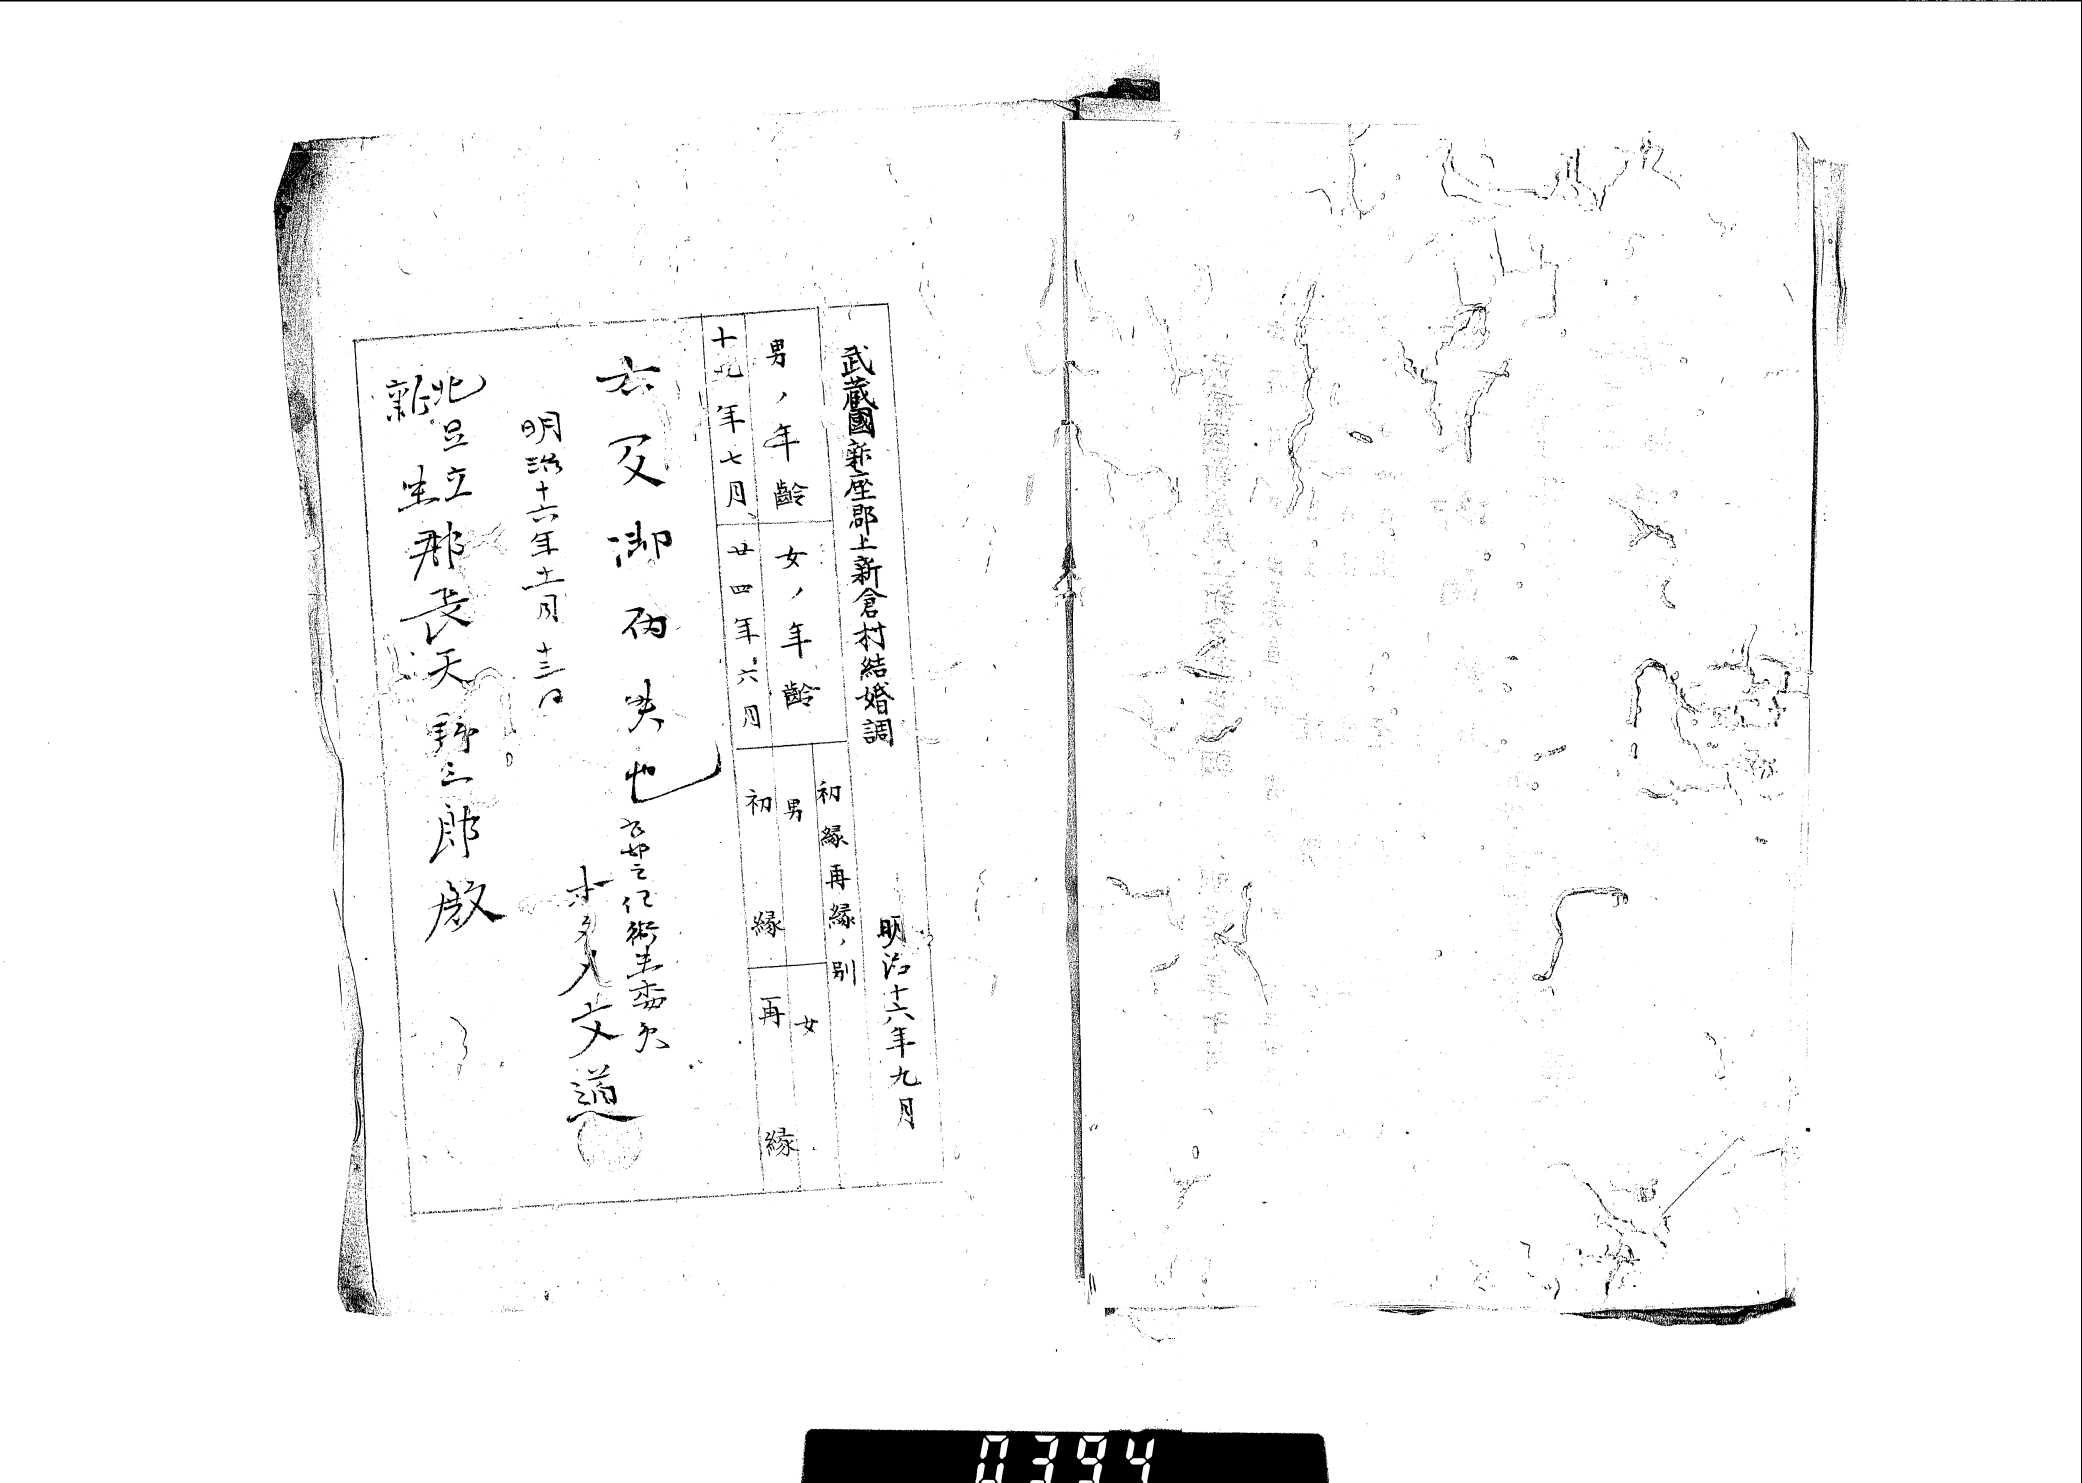 武蔵國新座郡上新倉村結婚調
明治十六年九月
男ノ年齢
女ノ年齢
初縁再縁ノ別
男
女
十九年七月
廿四年六月
初縁
再縁
六及御届候也
文道
明治十六年十一月十三日
北足立
新座
郡長天野三郎殿
0394